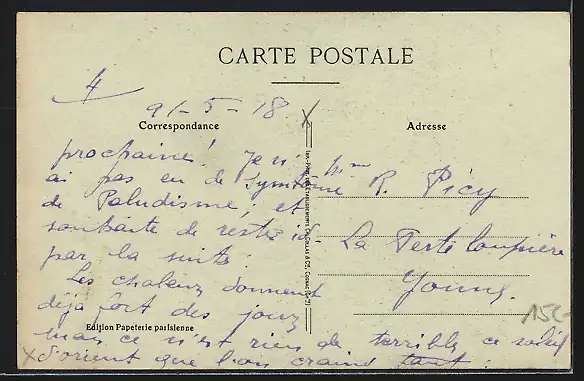 CARTE POSTALE
4
91-5-18
Correspondance
Adresse
prochaine! Je n'
ai pas eu de symptome
de Paludisme, et
souhaite de rester ici
par la suite.
Les chaleurs donnent
déjà fort des jours
mais ce n'est rien de terrible, ce soleil
d'orient que l'on craint tant.
Mme R. Picy
La Ferté Loupière
Yonne.
Edition Papeterie parisienne
15C-